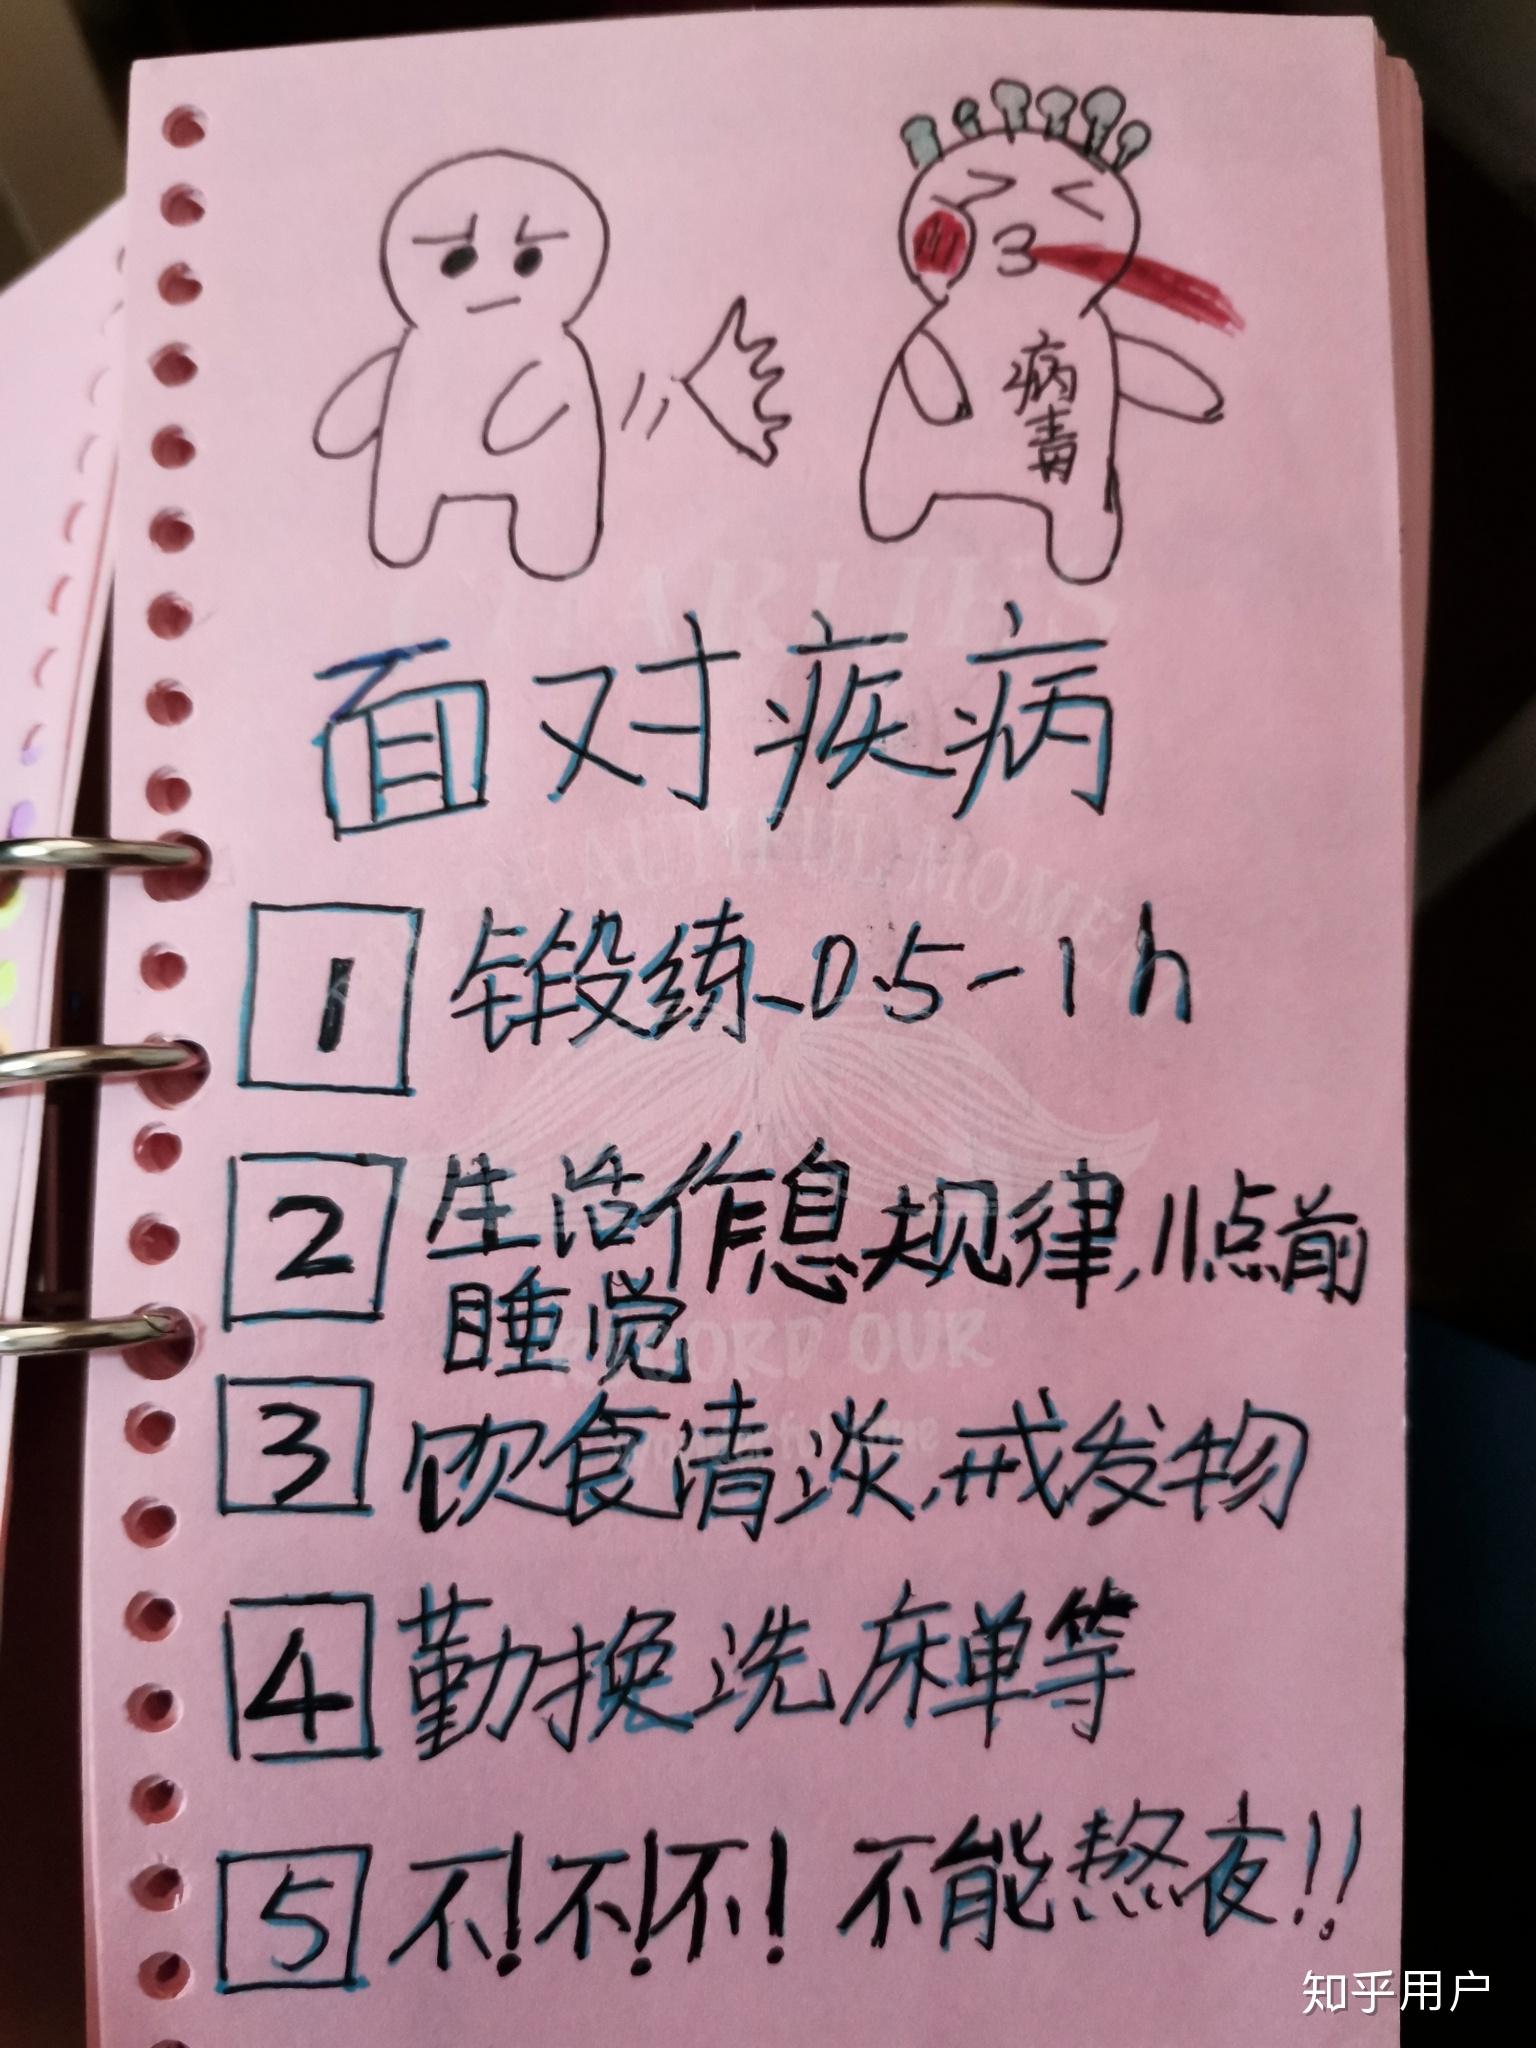 病毒
CHARLIE'S
面对疾病
BEAUTIFUL MOMEN
1 锻炼-0.5-1h
2 生活作息规律,11点前
睡觉
RECORD OUR
3 饮食清淡,戒发物
4 勤换洗床单等
5 不!不!不! 不能熬夜!!
知乎用户